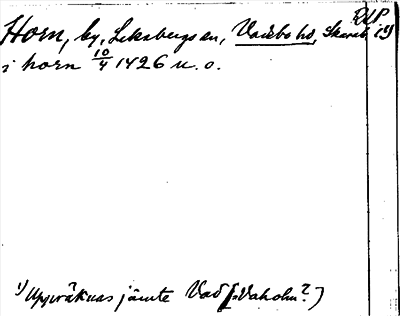 RAP
Horn, by, Leksbergs sn, Vadsbo hd, Skarab. 1)
i horn 10/4 1426 u. o.
1) Uppräknas jämte Vad [=Vaholm?]